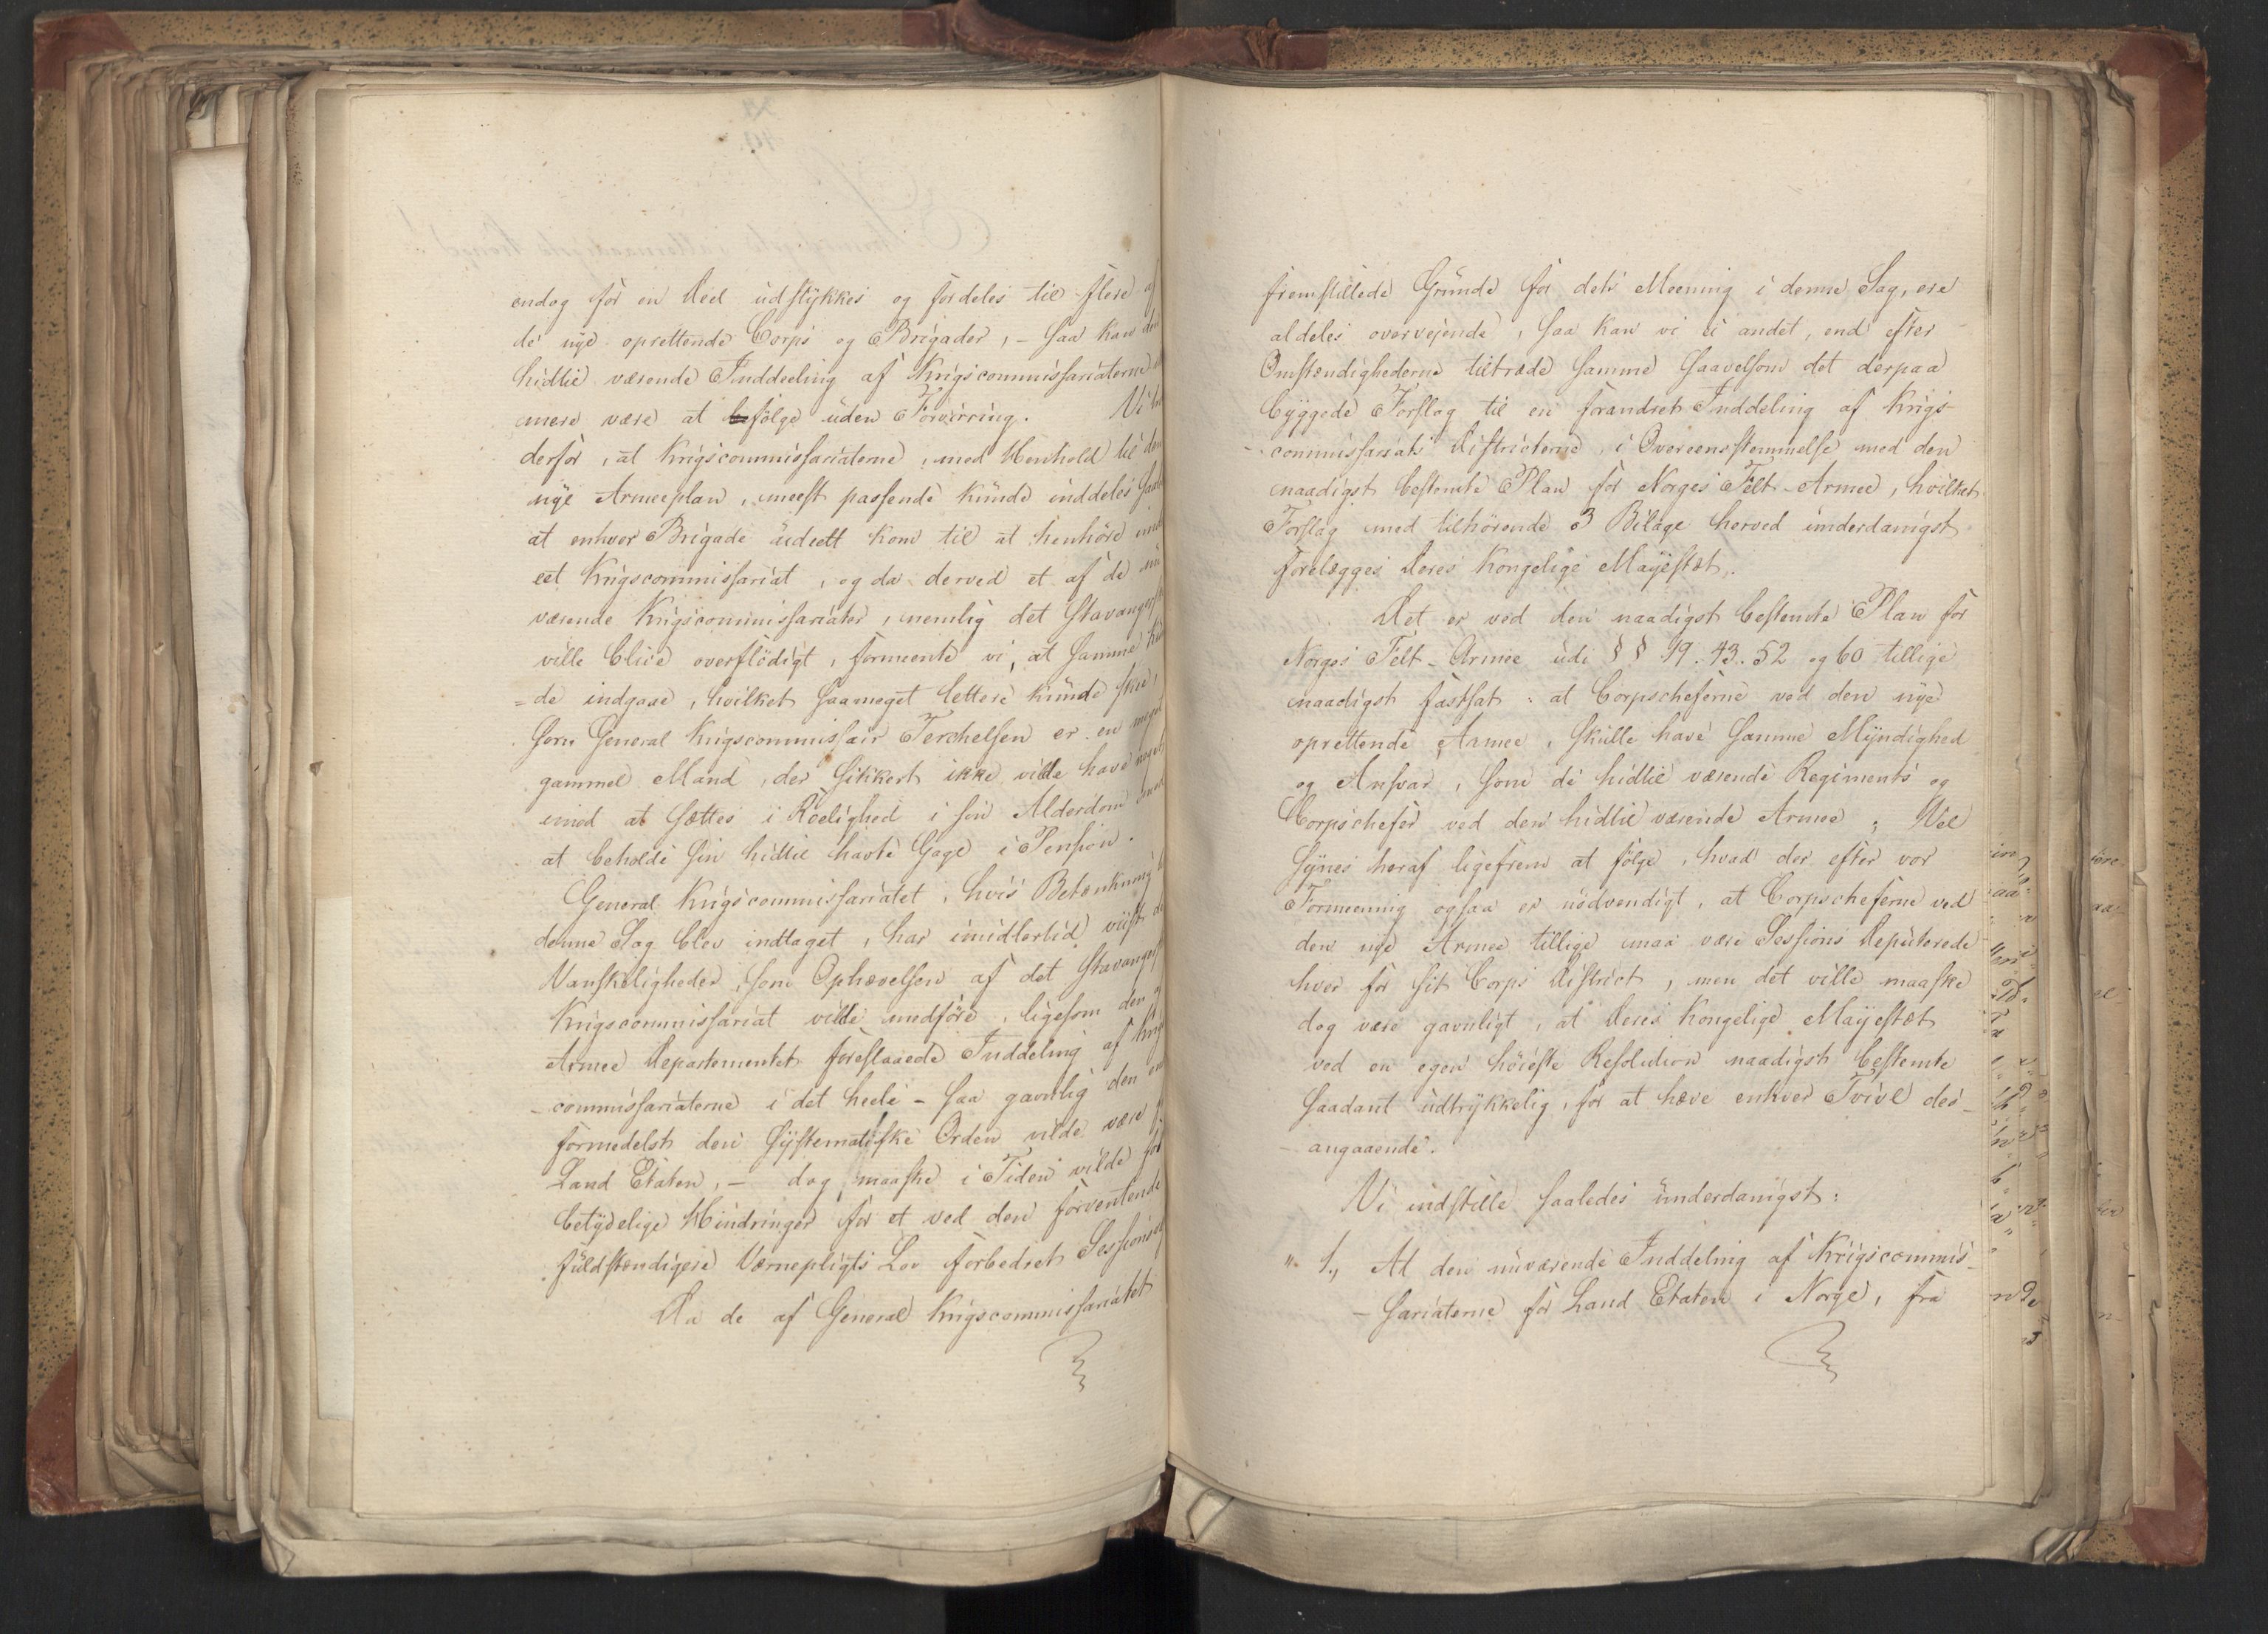 endog for en Deel udstykkes og fordeles til flere af
de nye oprettende Corps og Brigader, – saa kan den
hidtil værende Inddeeling af Krigscommissariaterne
mere være at befölge uden Forvirring. Vi
derfor, at Krigscommissariaterne, med Henhold til den
nye Armeeplan, meest passende kunde inddeles
at enhver Brigade udeelt kom til at henhöre
eet Krigscommissariat, og da derved et af de nu
værende Krigscommissariater, nemlig det Stavangerske
ville blive overflödigt, formeente vi, at samme
=de indgaae, hvilket saameget lettere kunde skee,
som General Krigscommissair Terchelsen er en meget
gammel Mand, der sikkert ikke vilde have noget
imod at sættes i Roelighed i sin Alderdom
at beholde sin hidtil havte Gage i Pension.
General Krigscommissariatet, hvis Betænkning
denne Sag blev indtaget, har imidlertid viist de
Vanskeligheder, som Ophævelsen af det Stavangerske
Krigscommissariat vilde medföre, ligesom den af
Armee Departementet foreslaaede Inddeling af Krigs
-commissariaterne i det heele – saa gavnlig den
formedelst den systematiske Orden vilde være
Land Etaten, – dog maaske i Tiden vilde
betydelige Hindringer for et ved den forventende
fuldstændigere Værnepligts Lov forbedret
Da de af General Krigscommissariatet
fremstillede Grunde for dets Meening i denne Sag, ere
aldeles overvejende, saa kan vi ei andet, end efter
Omstændighederne tiltræde samme saavelsom det derpaa
byggede Forslag til en forandret Inddeling af Krigs-
-commissariats Districterne i Overeensstemmelse med den
naadigst bestemte Plan for Norges Felt-Armee, hvilket
Forslag med tilhörende 3 Bilage herved underdanigst
forelægges Deres Kongelige Mayestæt.
Det er ved den naadigst bestemte Plan for
Norges Felt-Armee udi §§ 19. 43. 52 og 60 tillige
naadigst fastsat: at Corpscheferne ved den nye
oprettende Armee, skulle have samme Myndighed
og Ansvar, som de hidtil værende Regiments og
Corpschefer ved den hidtil værende Armee; Vel
synes heraf ligefrem at fölge, hvad der efter vor
Formeening ogsaa er nödvendigt, at Corpscheferne ved
den nye Armee tillige maa være Sessions Deputerede
hver for sit Corps District, men det ville maaske
dog være gavnligt, at Deres Kongelige Mayestæt
ved en egen höieste Resolution naadigst bestemte
saadant udtrykkelig, for at hæve enhver Tvivl des-
-angaaende.
Vi indstille saaledes underdanigst:
" 1., At den nuværende Inddeling af Krigscommis-
-sariaterne for Land Etaten i Norge, fra